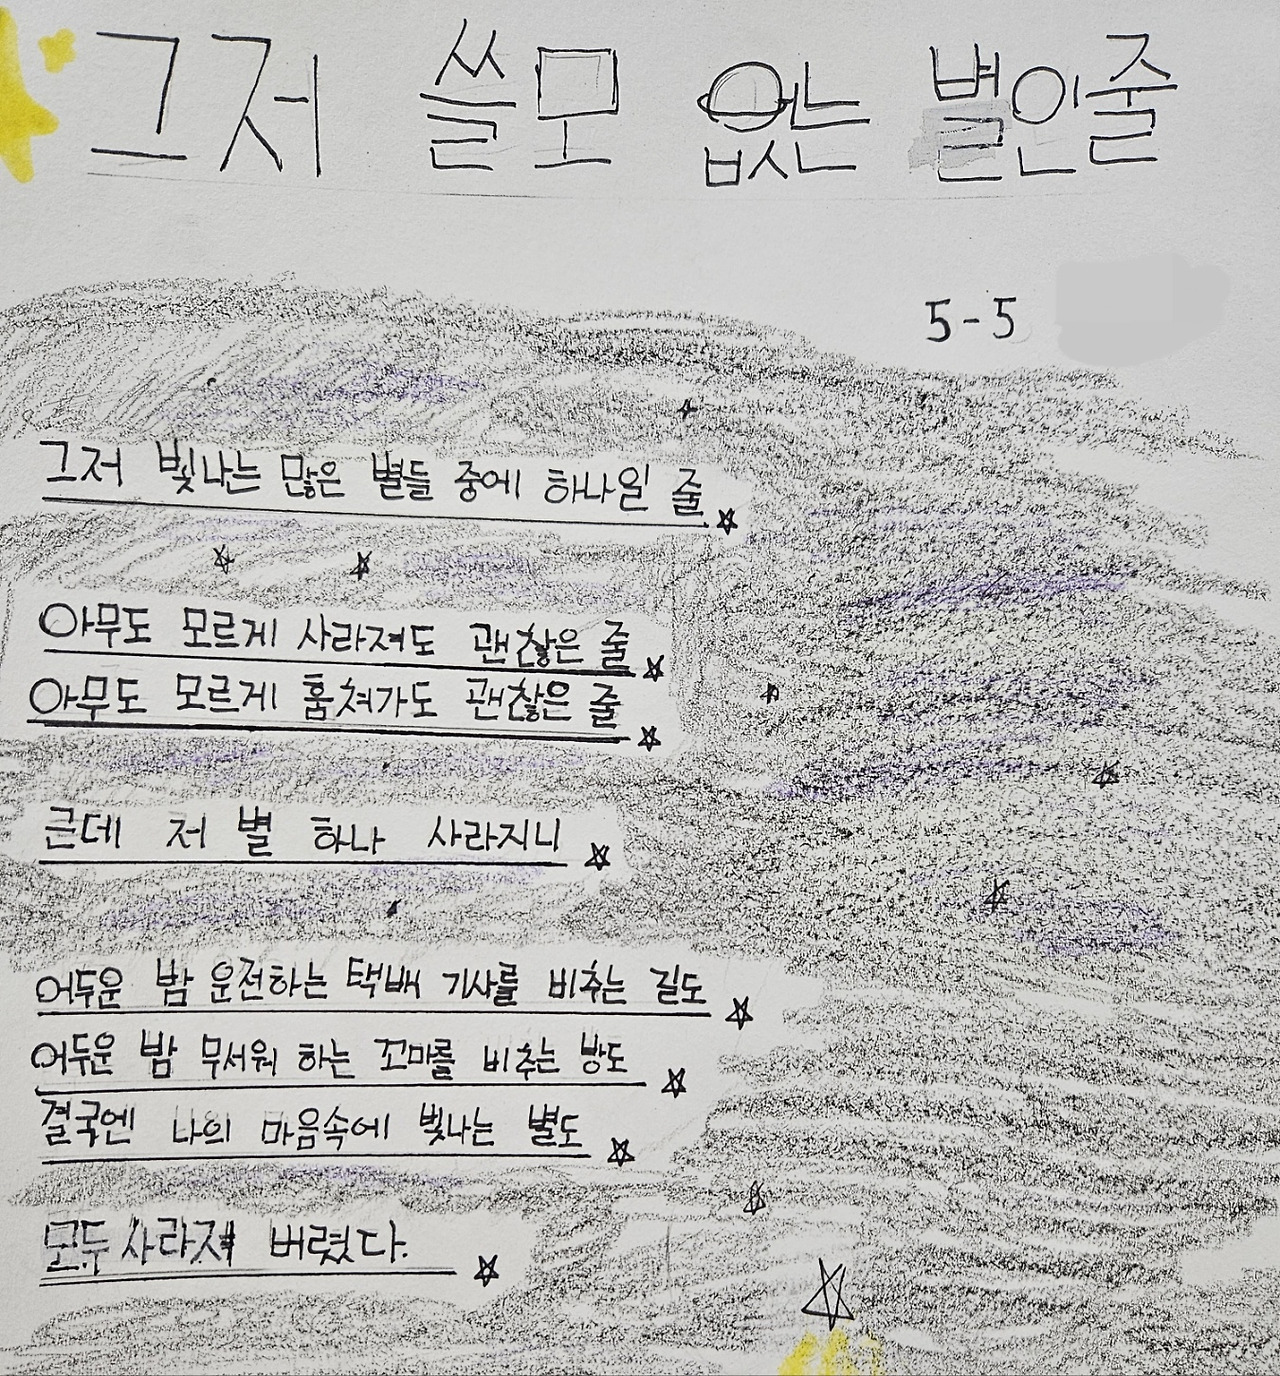 그저 쓸모 없는 별인줄
5-5
그저 빛나는 많은 별들 중에 하나일 줄
아무도 모르게 사라져도 괜찮은 줄
아무도 모르게 훔쳐가도 괜찮은 줄
근데 저 별 하나 사라지니
어두운 밤 운전하는 택배 기사를 비추는 길도
어두운 밤 무서워 하는 꼬마를 비추는 방도
결국엔 나의 마음속에 빛나는 별도
모두 사라져 버렸다.